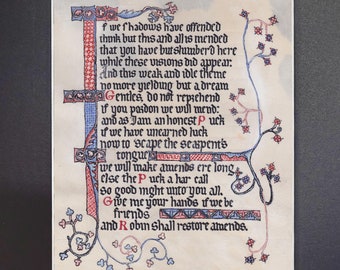 If we shadows have offended
think but this and all is mended
that you have but slumber'd here
while these visions did appear.
And this weak and idle theme
no more yielding but a dream
Gentles, do not reprehend
if you pardon we will mend:
and as I am an honest Puck
if we have unearned luck
now to scape the serpents
tongue
we will make amends ere long
else the Puck a liar call
so good night unto you all.
Give me your hands if we be
friends
and Robin shall restore amends.